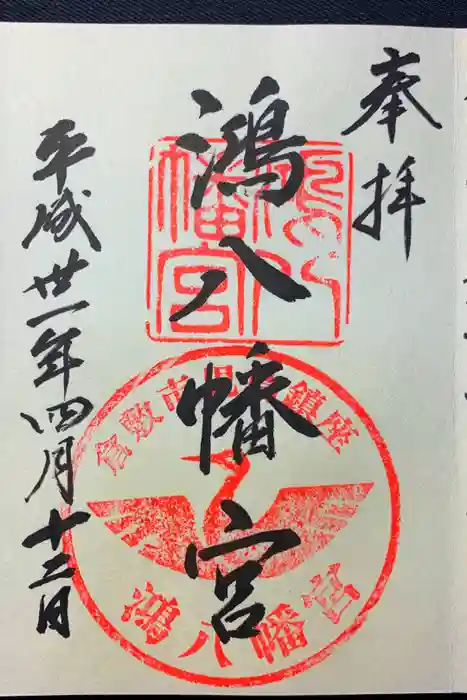 奉拝
鴻八幡宮
平成丗一年四月十二日
鴻八幡宮
倉敷市児島鎮座
鴻八幡宮